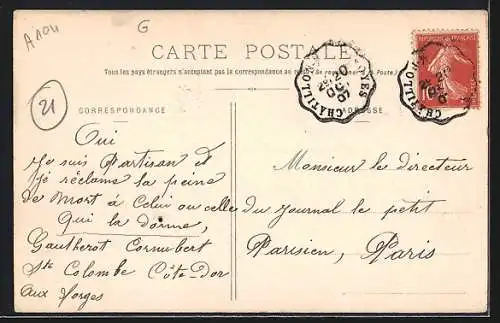 A 1104
G
CARTE POSTALE
Tous les pays étrangers n'acceptent pas la correspondance au recto
21
CORRESPONDANCE
Oui
Je suis Partisan et
Je réclame la peine
de Mort à Celui ou celle
Qui la donne,
Gautherot Cornubert
Ste Colombe Côte-Dor
Aux Forges
Monsieur le directeur
du Journal le petit
Parisien, Paris
CHATILLON
20
OC
07
CHATILLON